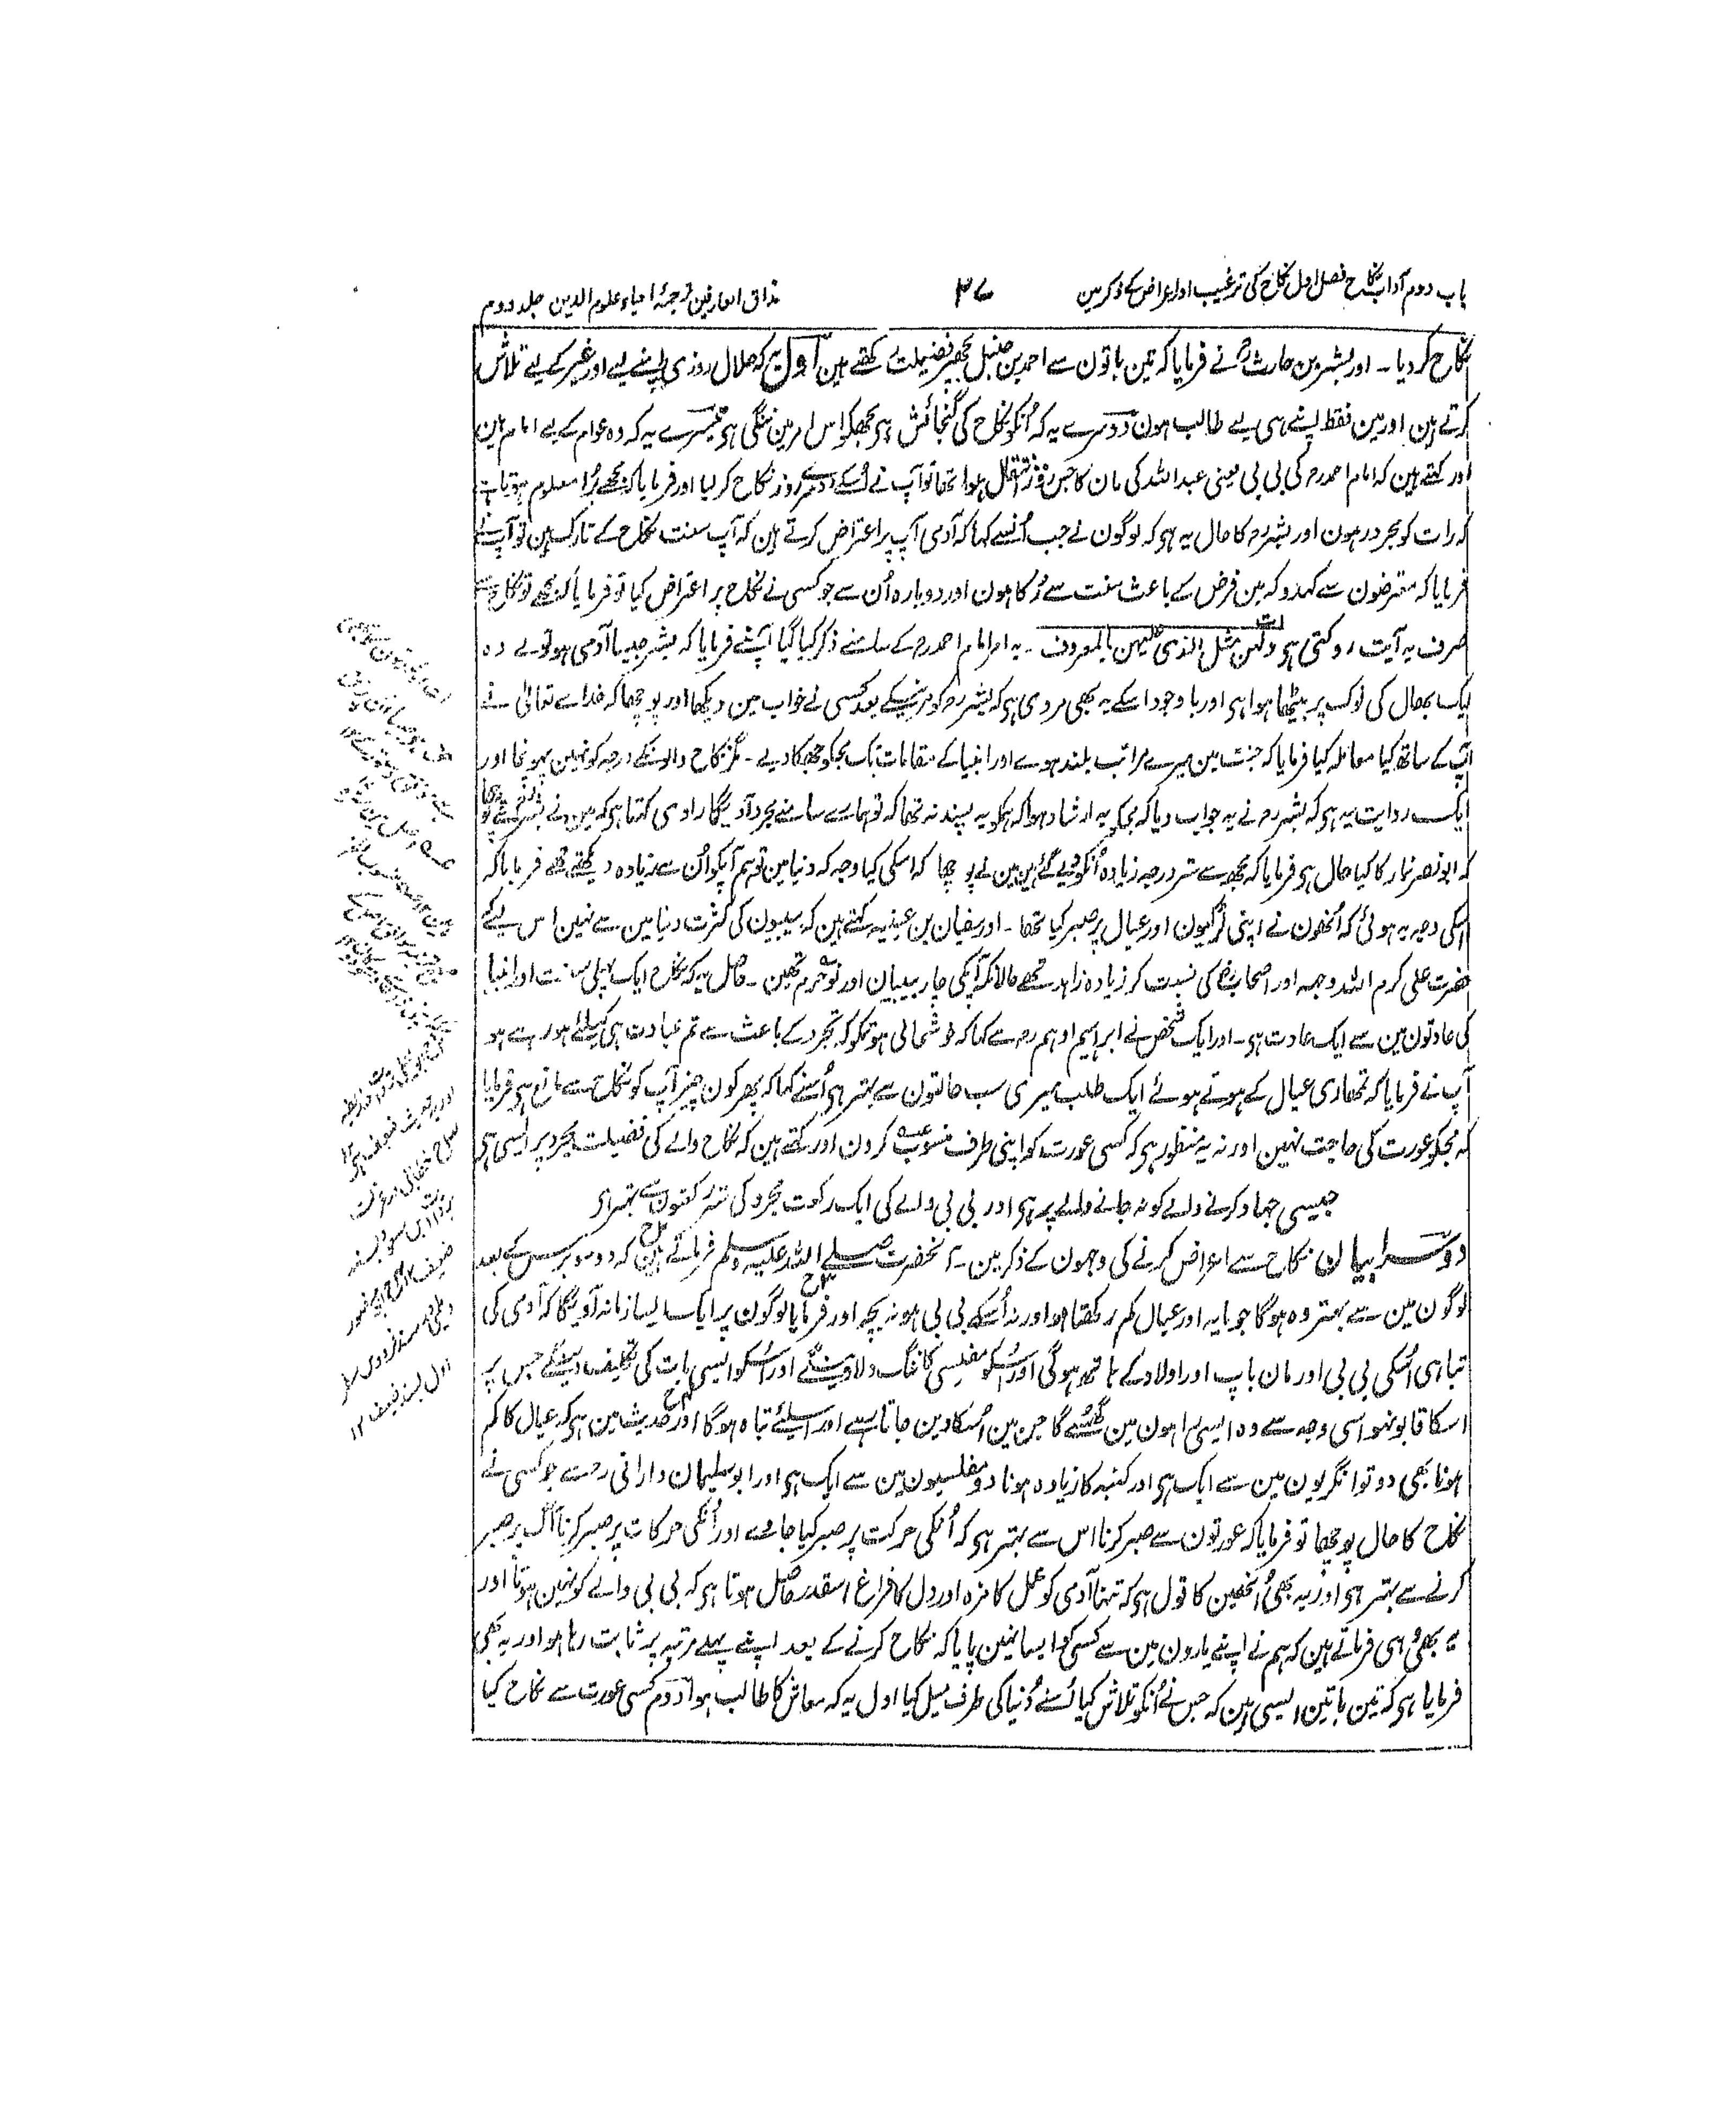 باب دوم آداب نکاح فصل اول نکاح کی ترغیب اور اعراض کے ذکر مین
۳۷
مذاق العارفین ترجمۂ احیاء علوم الدین جلد دوم
نکاح کر دیا ۔ اور بشر بن حارثؒ نے فرمایا کہ تین باتون سے احمد بن حنبل مجھپر فضیلت رکھتے ہین اول یہ کہ حلال روزی اپنے لیے اور غیر کے لیے تلاش
کرتے ہین اور مین فقط اپنے ہی لیے طالب ہون دوسرے یہ کہ اُنکو نکاح کی گنجائش ہی مجھکو اس امر مین تنگی ہی تیسرے یہ کہ وہ عوام کے لیے امام ہین
اور کہتے ہین کہ امام احمد رح کی بی بی یعنی عبد اللہ کی مان کا جس روز انتقال ہوا تھا تو آپ نے اُسکے دوسرے روز نکاح کر لیا اور فرمایا کہ مجھے بُرا معلوم ہوتا ہے
کہ رات کو مجرد رہون اور بشر رح کا حال یہ ہی کہ لوگون نے جب اُنسے کہا کہ آدمی آپ پر اعتراض کرتے ہین کہ آپ سنت نکاح کے تارک ہین تو آپ نے
فرمایا کہ معترضون سے کہدو کہ مین فرض کے باعث سنت سے رُکا ہون اور دوبارہ اُن سے جو کسی نے نکاح پر اعتراض کیا تو فرمایا کہ مجھے تو نکاح سے
صرف یہ آیت روکتی ہی ولہن مثل الذی علیہن بالمعروف ۔ یہ امر امام احمد رح کے سامنے ذکر کیا گیا آپنے فرمایا کہ بشر جیسا آدمی ہو تولے وہ
ایک بھال کی نوک پر بیٹھا ہوا ہی اور باوجود اسکے یہ بھی مروی ہی کہ بشر رح کو مرنیکے بعد کسی نے خواب مین دیکھا اور پوچھا کہ خداے تعالیٰ نے
آپ کے ساتھ کیا معاملہ کیا فرمایا کہ جنت مین میرے مراتب بلند ہوے اور انبیا کے مقامات تک مجکو جھکا دیے ۔ مگر نکاح والونکے درجہ کو نہین پہونچا اور
ایک روایت یہ ہی کہ بشر رح نے یہ جواب دیا کہ مجکو یہ ارشاد ہوا کہ ہمکو یہ پسند نہ تھا کہ تو ہمارے سامنے مجرد آدیگا راوی کہتا ہی کہ مین نے بشر سے پوچھا
کہ ابو نصر تمار کا کیا حال ہی فرمایا کہ مجھ سے ستر درجہ زیادہ اُنکو دیے گئے ہین مین نے پوچھا کہ اسکی کیا وجہ کہ دنیا مین تو ہم آپکو اُن سے زیادہ دیکھتے تھے فرمایا کہ
اسکی وجہ یہ ہوئی کہ اُنھون نے اپنی لڑکیون اور عیال پر صبر کیا تھا ۔ اور سفیان بن عیینہ کہتے ہین کہ بیبیون کی کثرت دنیا مین سے نہین اس لیے کہ
حضرت علی کرم اللہ وجہہ اور اصحابؓ کی نسبت کر زیادہ زاہد تھے حالانکہ آپکی چار بیبیان اور نو حرم تھین ۔ حاصل یہ کہ نکاح ایک پہلی سنت اور انبیا
کی عادتون مین سے ایک عادت ہی ۔ اور ایک شخص نے ابراہیم ادہم رح سے کہا کہ خوشحالی ہو تمکو کہ تجرد کے باعث سے تم عبادت ہی کیلئے ہو رہے ہو
آپ نے فرمایا کہ تمھاری عیال کے ہوتے ہوئے ایک طلب میری سب حالتون سے بہتر ہی اُسنے کہا کہ پھر کون چیز آپ کو نکاح سے مانع ہی فرمایا
کہ مجکو عورت کی حاجت نہین اور نہ یہ منظور ہی کہ کسی عورت کو اپنی طرف منسوب کرون اور کہتے ہین کہ نکاح والے کی فضیلت مجرد پر ایسی ہی
جیسی جہاد کرنے والے کو نہ جانے والے پر ہی اور بی بی والے کی ایک رکعت مجرد کی ستر رکعتون سے بہتر ہی
دوسرا بیان نکاح سے اعراض کرنے کی وجہون کے ذکر مین ۔ آنحضرت صلے اللہ علیہ وسلم فرماتے ہین کہ دو سو برس کے بعد
لوگون مین سے بہتر وہ ہوگا جو مایہ اور عیال کم رکھتا ہو اور نہ اُسکے بی بی ہو نہ بچہ اور فرمایا لوگون پر ایک ایسا زمانہ آویگا کہ آدمی کی
تباہی اُسکی بی بی اور مان باپ اور اولاد کے ہاتھ ہوگی اور اُسکو مفلسی کا ننگ دلاوینگے اور اُسکو ایسی بات کی تکلیف دینگے جس پر
اسکا قابو نہو اسی وجہ سے وہ ایسی راہون مین گھسے گا جن مین اُسکا دین جاتا رہے اور اسلئے تباہ ہوگا اور حدیث مین ہی کہ عیال کا کم
ہونا بھی دو توانگریون مین سے ایک ہی اور کنبہ کا زیادہ ہونا دو مفلسیون مین سے ایک ہی اور ابو سلیمان دارانی رح سے جو کسی نے
نکاح کا حال پوچھا تو فرمایا کہ عورتون سے صبر کرنا اس سے بہتر ہی کہ اُنکی حرکت پر صبر کیا جاوے اور اُنکی حرکات پر صبر کرنا آگ پر صبر
کرنے سے بہتر ہی اور یہ بھی اُنھین کا قول ہی کہ تنہا آدمی کو عمل کا مزہ اور دل کا فراغ اسقدر حاصل ہوتا ہی کہ بی بی والے کو نہین ہوتا اور
یہ بھی وہی فرماتے ہین کہ ہم نے اپنے یارون مین سے کسی کو ایسا نہین پایا کہ نکاح کرنے کے بعد اپنے پہلے مرتبہ پر ثابت رہا ہو اور یہ بھی
فرمایا ہی کہ تین باتین ایسی ہین کہ جس نے اُنکو تلاش کیا اُسنے دُنیا کی طرف میل کیا اول یہ کہ معاش کا طالب ہوا دوم کسی عورت سے نکاح کیا